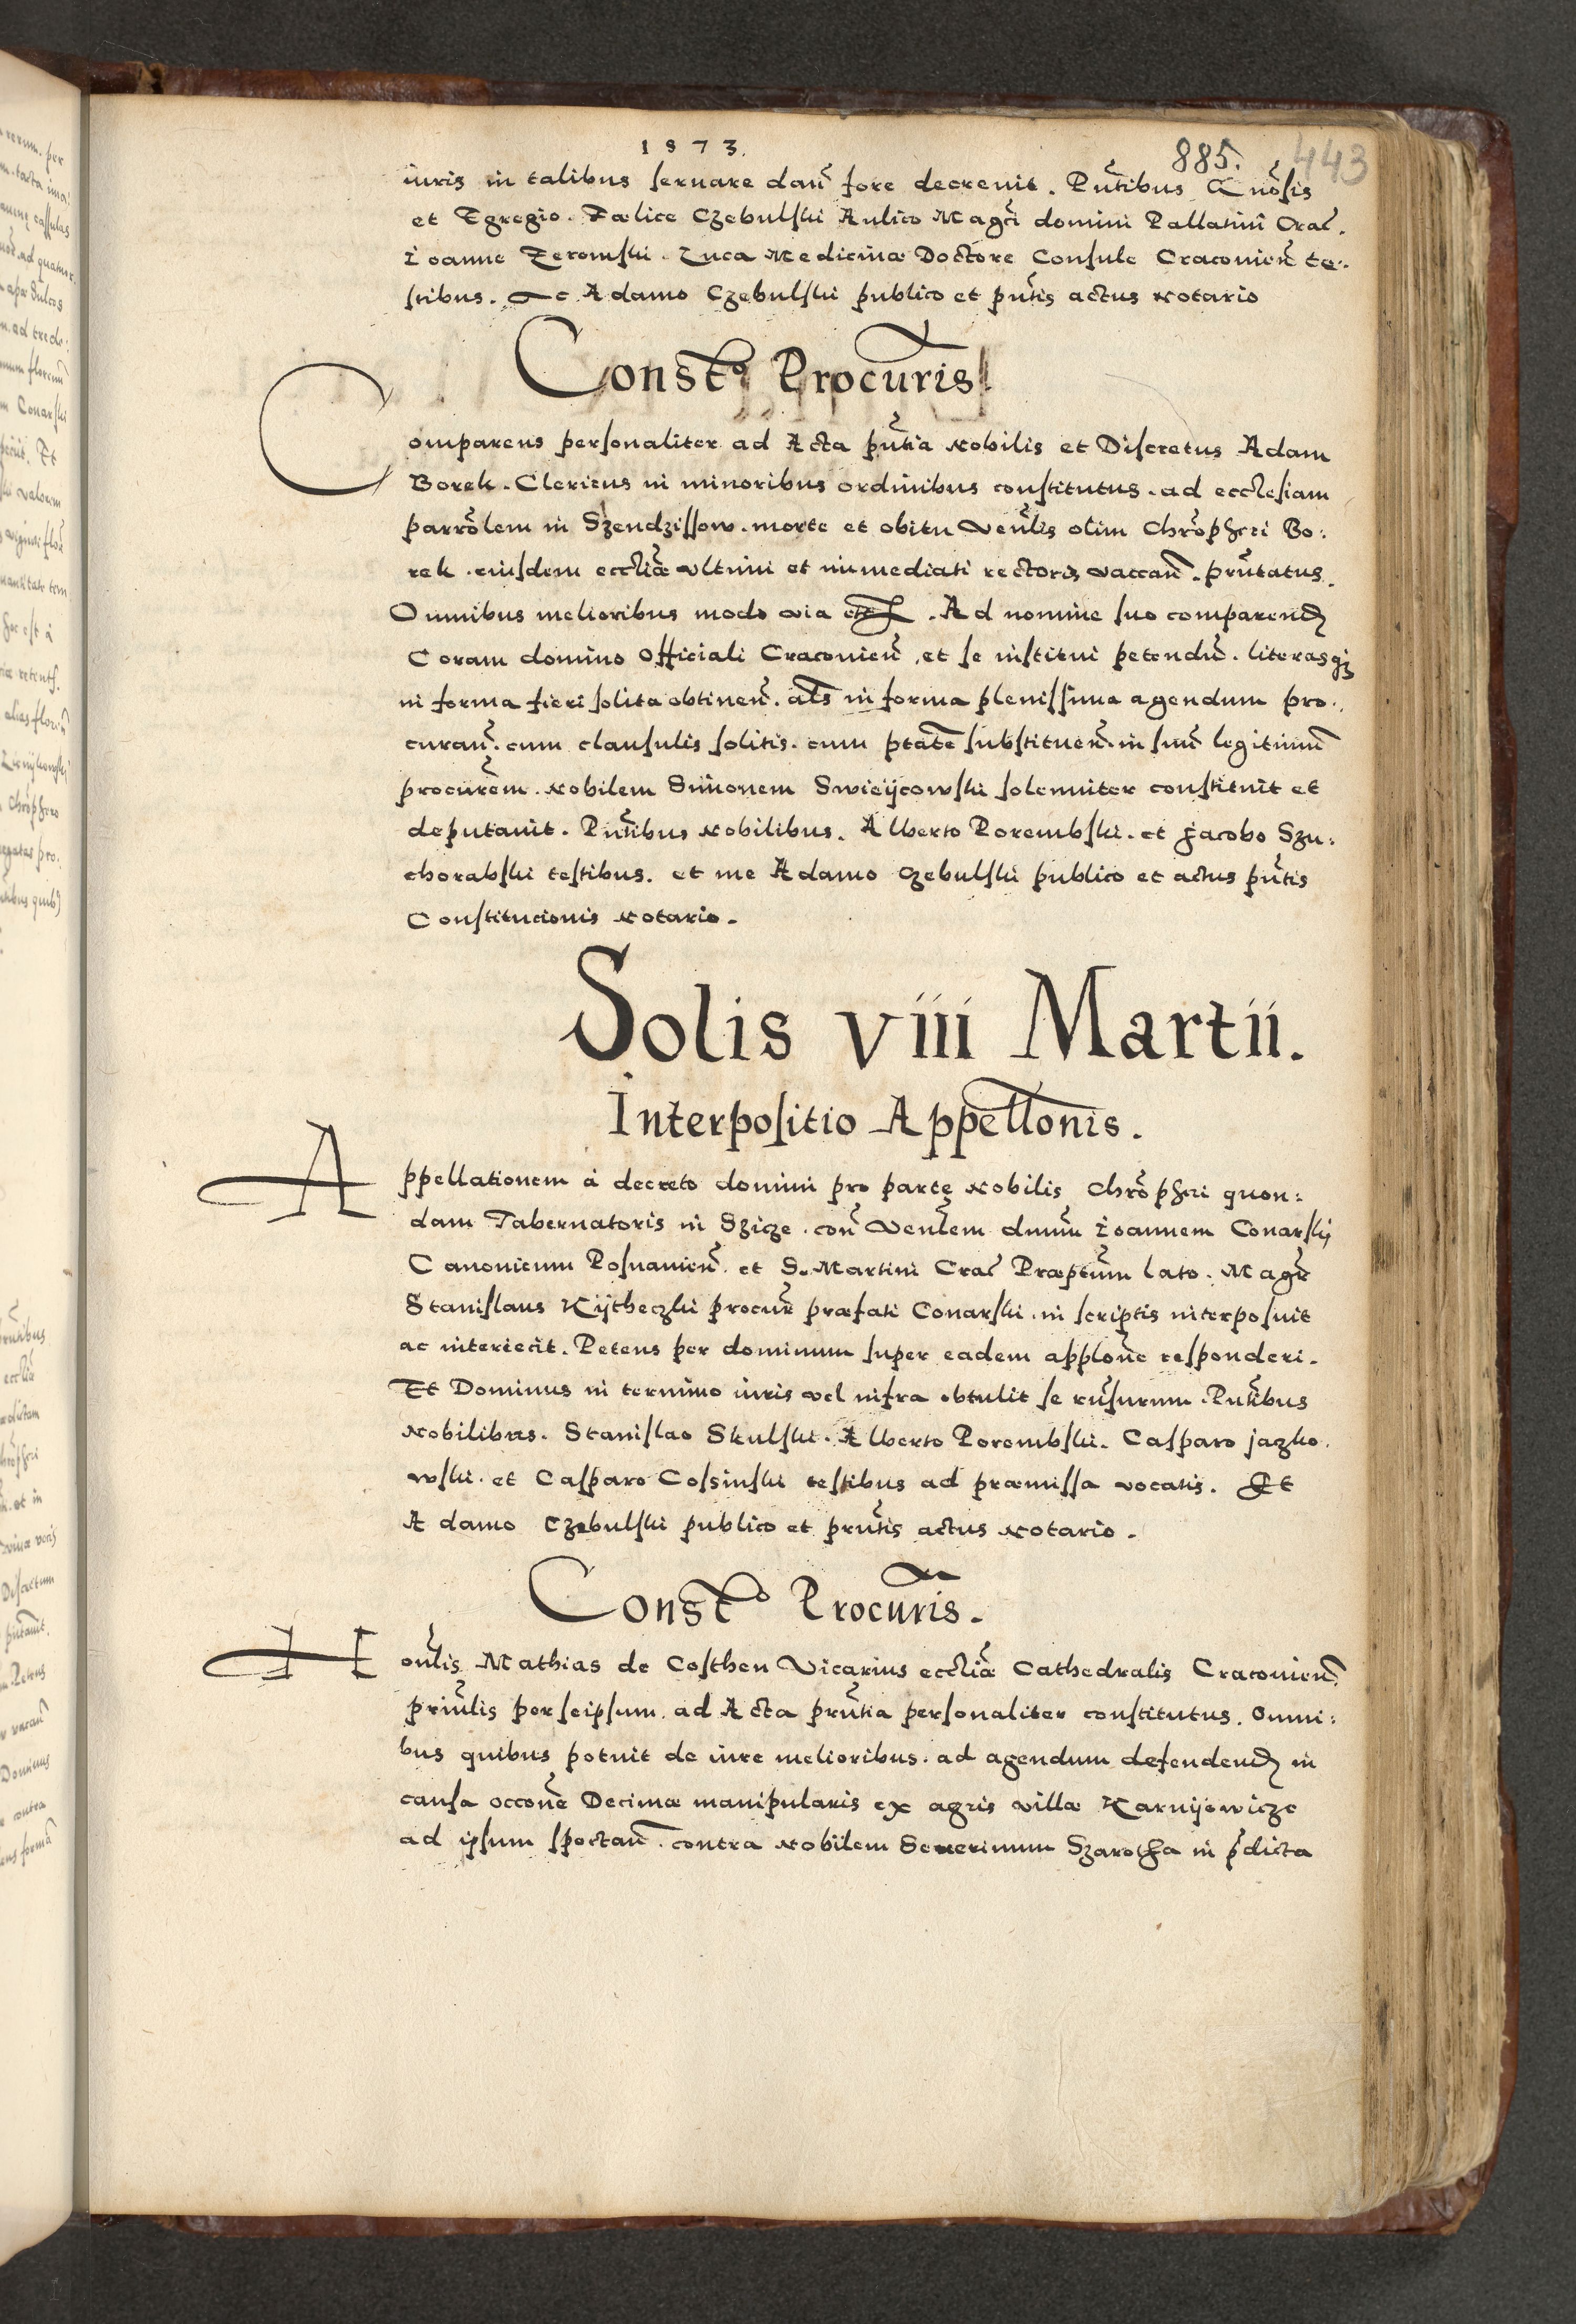 1573.
885. 443
iuris in talibus seruare dañ fore decreuit. Pñtibus Gñosis
et Egregio. Fælice Czebulski Aulico Magci domini Pallatini Crac̃.
Ioanne Zeromski. Luca Medicinæ Doctore Consule Cracouieñ te:
stibus. Ac Adamo Czebulski publico et pñtis actus Notario
Const° Procuris
Comparens personaliter ad Acta pñtia Nobilis et Discretus Adam
Borek. Clericus in minoribus ordinibus constitutus. ad ecclesiam
parrõlem in Szendzissow. morte et obitu Veñlis olim Chrõpheri Bo:
rek. eiusdem eccliæ vltimi et immediati rectoris vaccañ. prñtatus.
Omnibus melioribus modo via etc. Ad nomine suo comparend
Coram domino Officiali Cracouieñ. et se institui petendũ. literasqʒ
in forma fieri solita obtineñ. als in forma plenissima agendum pro.
curañ. cum clausulis solitis. cum ptate substitueñ. in suũ legitimũ
procurem. Nobilem Simonem Swieijcowski solenniter constituit et
deputauit. Pñtibus Nobilibus. Alberto Porembski. et Jacobo Szu:
chorabski testibus. et me Adamo Czebulski publico et actus pñtis
Constitucionis Notario.
Solis viii Martii.
Interpositio Appellonis.
Appellationem à decreto domini pro parte Nobilis Chrõpheri quon:
dam Tabernatoris in Szicze. coñ Veñlem dnum Ioannem Conarskj
Canonicum Posnanieñ. et S. Martini Crac̃ Præptũm lato. Magr̃
Stanislaus Kijtheczki procur̃ præfati Conarski. in scriptis interposuit
ac interiecit. Petens per dominum super eadem applone responderi.
Et Dominus in termino iuris vel infra obtulit se rñsurum. Pñtibus
Nobilibus. Stanislao Skulski. Alberto Porembski. Casparo jazko.
wski. et Casparo Cossinski testibus ad præmissa vocatis. Et
Adamo Czebulski publico et prñtis actus Notario.
Const° Procuris.
Honlis Mathias de Costhen Vicarius eccliæ Cathedralis Cracouieñ.
priñlis per seipsum. ad Acta prñtia personaliter constitutus. Omni:
bus quibus potuit de iure melioribus. ad agendum defendend in
causa occone Decimæ manipularis ex agris villæ Karnijowicze
ad ipsum spectañ. contra Nobilem Seuerinum Szarotha in pdicta